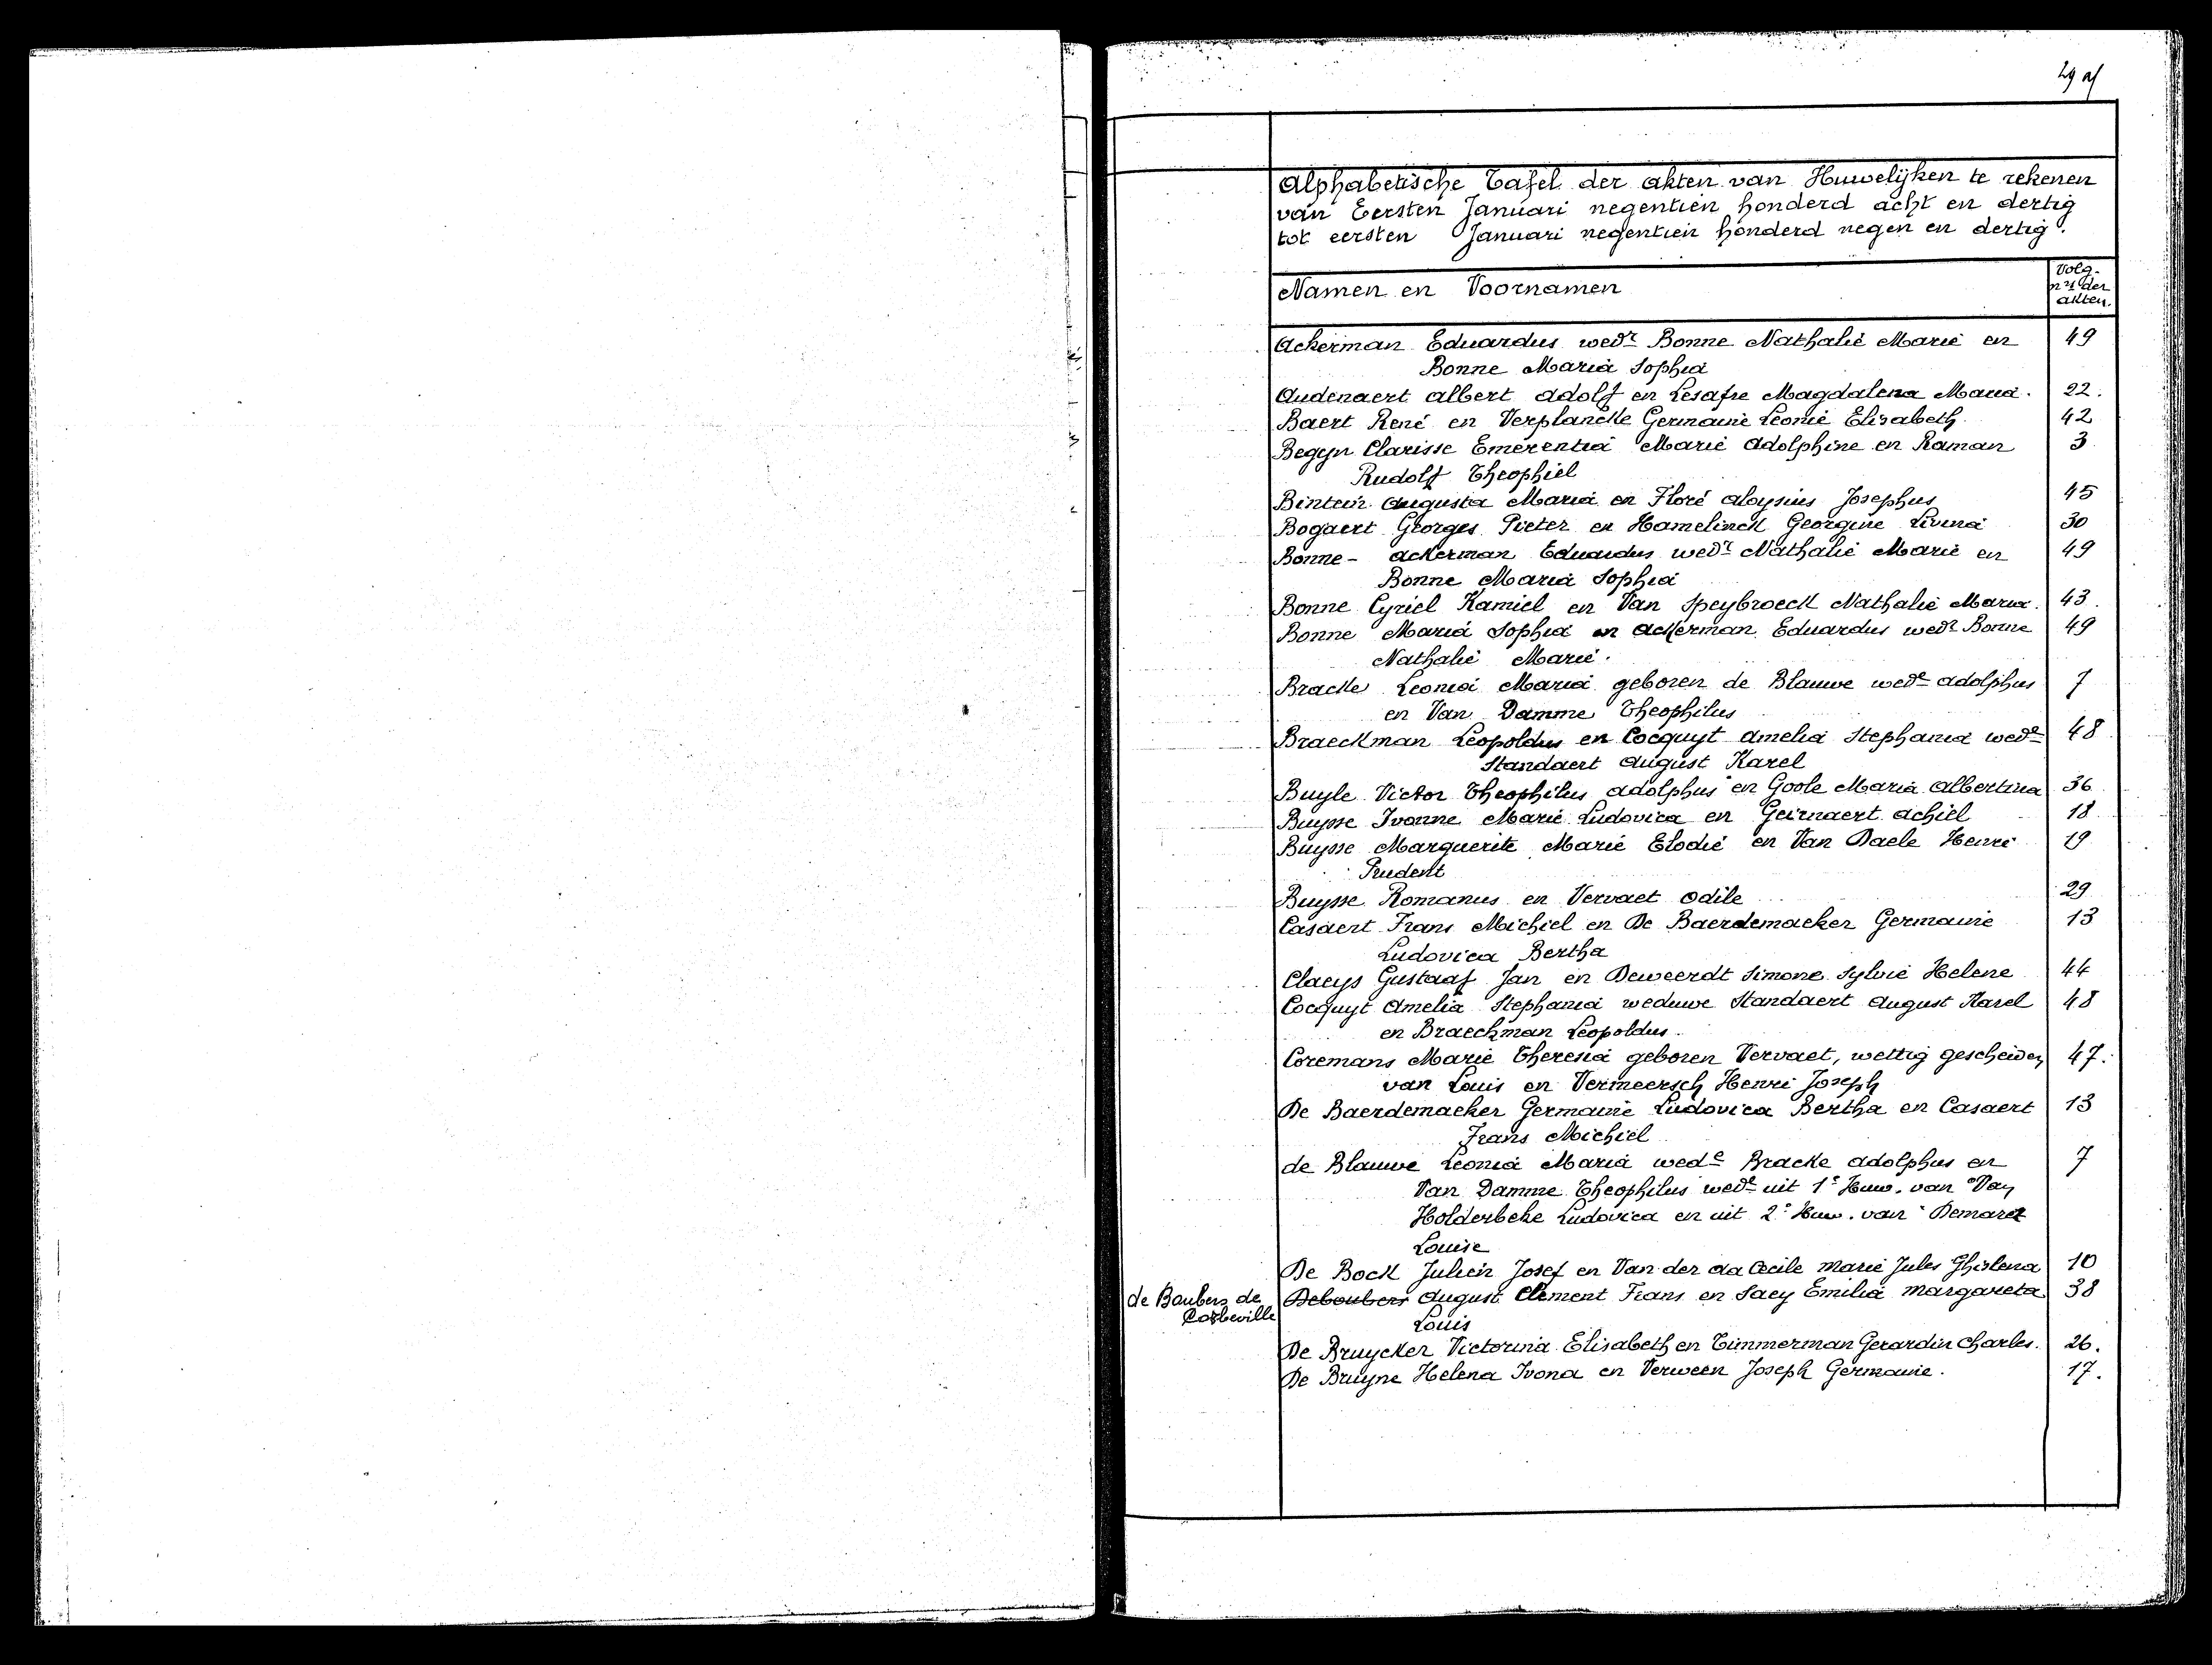 Alphabetische Tafel der akten van Huwelijken te rekenen
van Eersten Januari negentien honderd acht en dertig
tot eersten Januari negentien honderd negen en dertig.
Namen en Voornamen
Volg-
nrs der
akten.
Ackerman Eduardus wedr Bonne Nathalie Marie en 49
Bonne Maria Sophia
Audenaert Albert Adolf en Lesafre Magdalena Maria. 22.
Baert René en Verplancke Germaine Leonie Elisabeth 42
Begyn Clarisse Emerentia Marie Adolphine en Raman 3
Rudolf Theophiel
Bintein Augusta Maria en Floré Aloysius Josephus 45
Bogaert Georges Pieter en Hamelinck Georgine Livina 30
Bonne - Ackerman Eduardus wedr Nathalie Marie en 49
Bonne Maria Sophia
Bonne Cyriel Kamiel en Van Speybroeck Nathalie Maria. 43.
Bonne Maria Sophia en Ackerman Eduardus wedr Bonne 49
Nathalie Marie.
Bracke Leonia Maria geboren de Blauwe wede Adolphus 7
en Van Damme Theophilus
Braeckman Leopoldus en Cocquyt Amelia Stephania wede 48
Standaert August Karel
Buyle Victor Theophilus Adolphus en Goole Maria Albertina 36
Buysse Ivonne Marie Ludovica en Geirnaert Achiel 18
Buysse Marguerite Marie Elodie en Van Daele Henri 19
Prudent
Buysse Romanus en Vervaet Odile 29
Casaert Frans Michiel en De Baerdemaeker Germaine 13
Ludovica Bertha
Claeys Gustaaf Jan en Deweerdt Simone Sylvie Helene 44
Cocquyt Amelia Stephania weduwe Standaert August Karel 48
en Braeckman Leopoldus.
Coremans Marie Theresia geboren Vervaet, wettig gescheiden 47.
van Louis en Vermeersch Henri Joseph
De Baerdemaeker Germaine Ludovica Bertha en Casaert 13
Frans Michiel
de Blauwe Leonia Maria wede Bracke Adolphus en 7
Van Damme Theophilus wedr uit 1e Huw. van Van
Holderbeke Ludovica en uit 2e Huw. van Demaret
Louise
De Bock Julien Josef en Van der aa Cecile Marie Jules Ghislena 10
de Boubers de Deboubers August Clement Frans en Saey Emilia Margareta 38
Corbeville Louis
De Bruycker Victorina Elisabeth en Timmerman Gerardin Charles. 26.
De Bruyne Helena Ivona en Verween Joseph Germaine. 17.